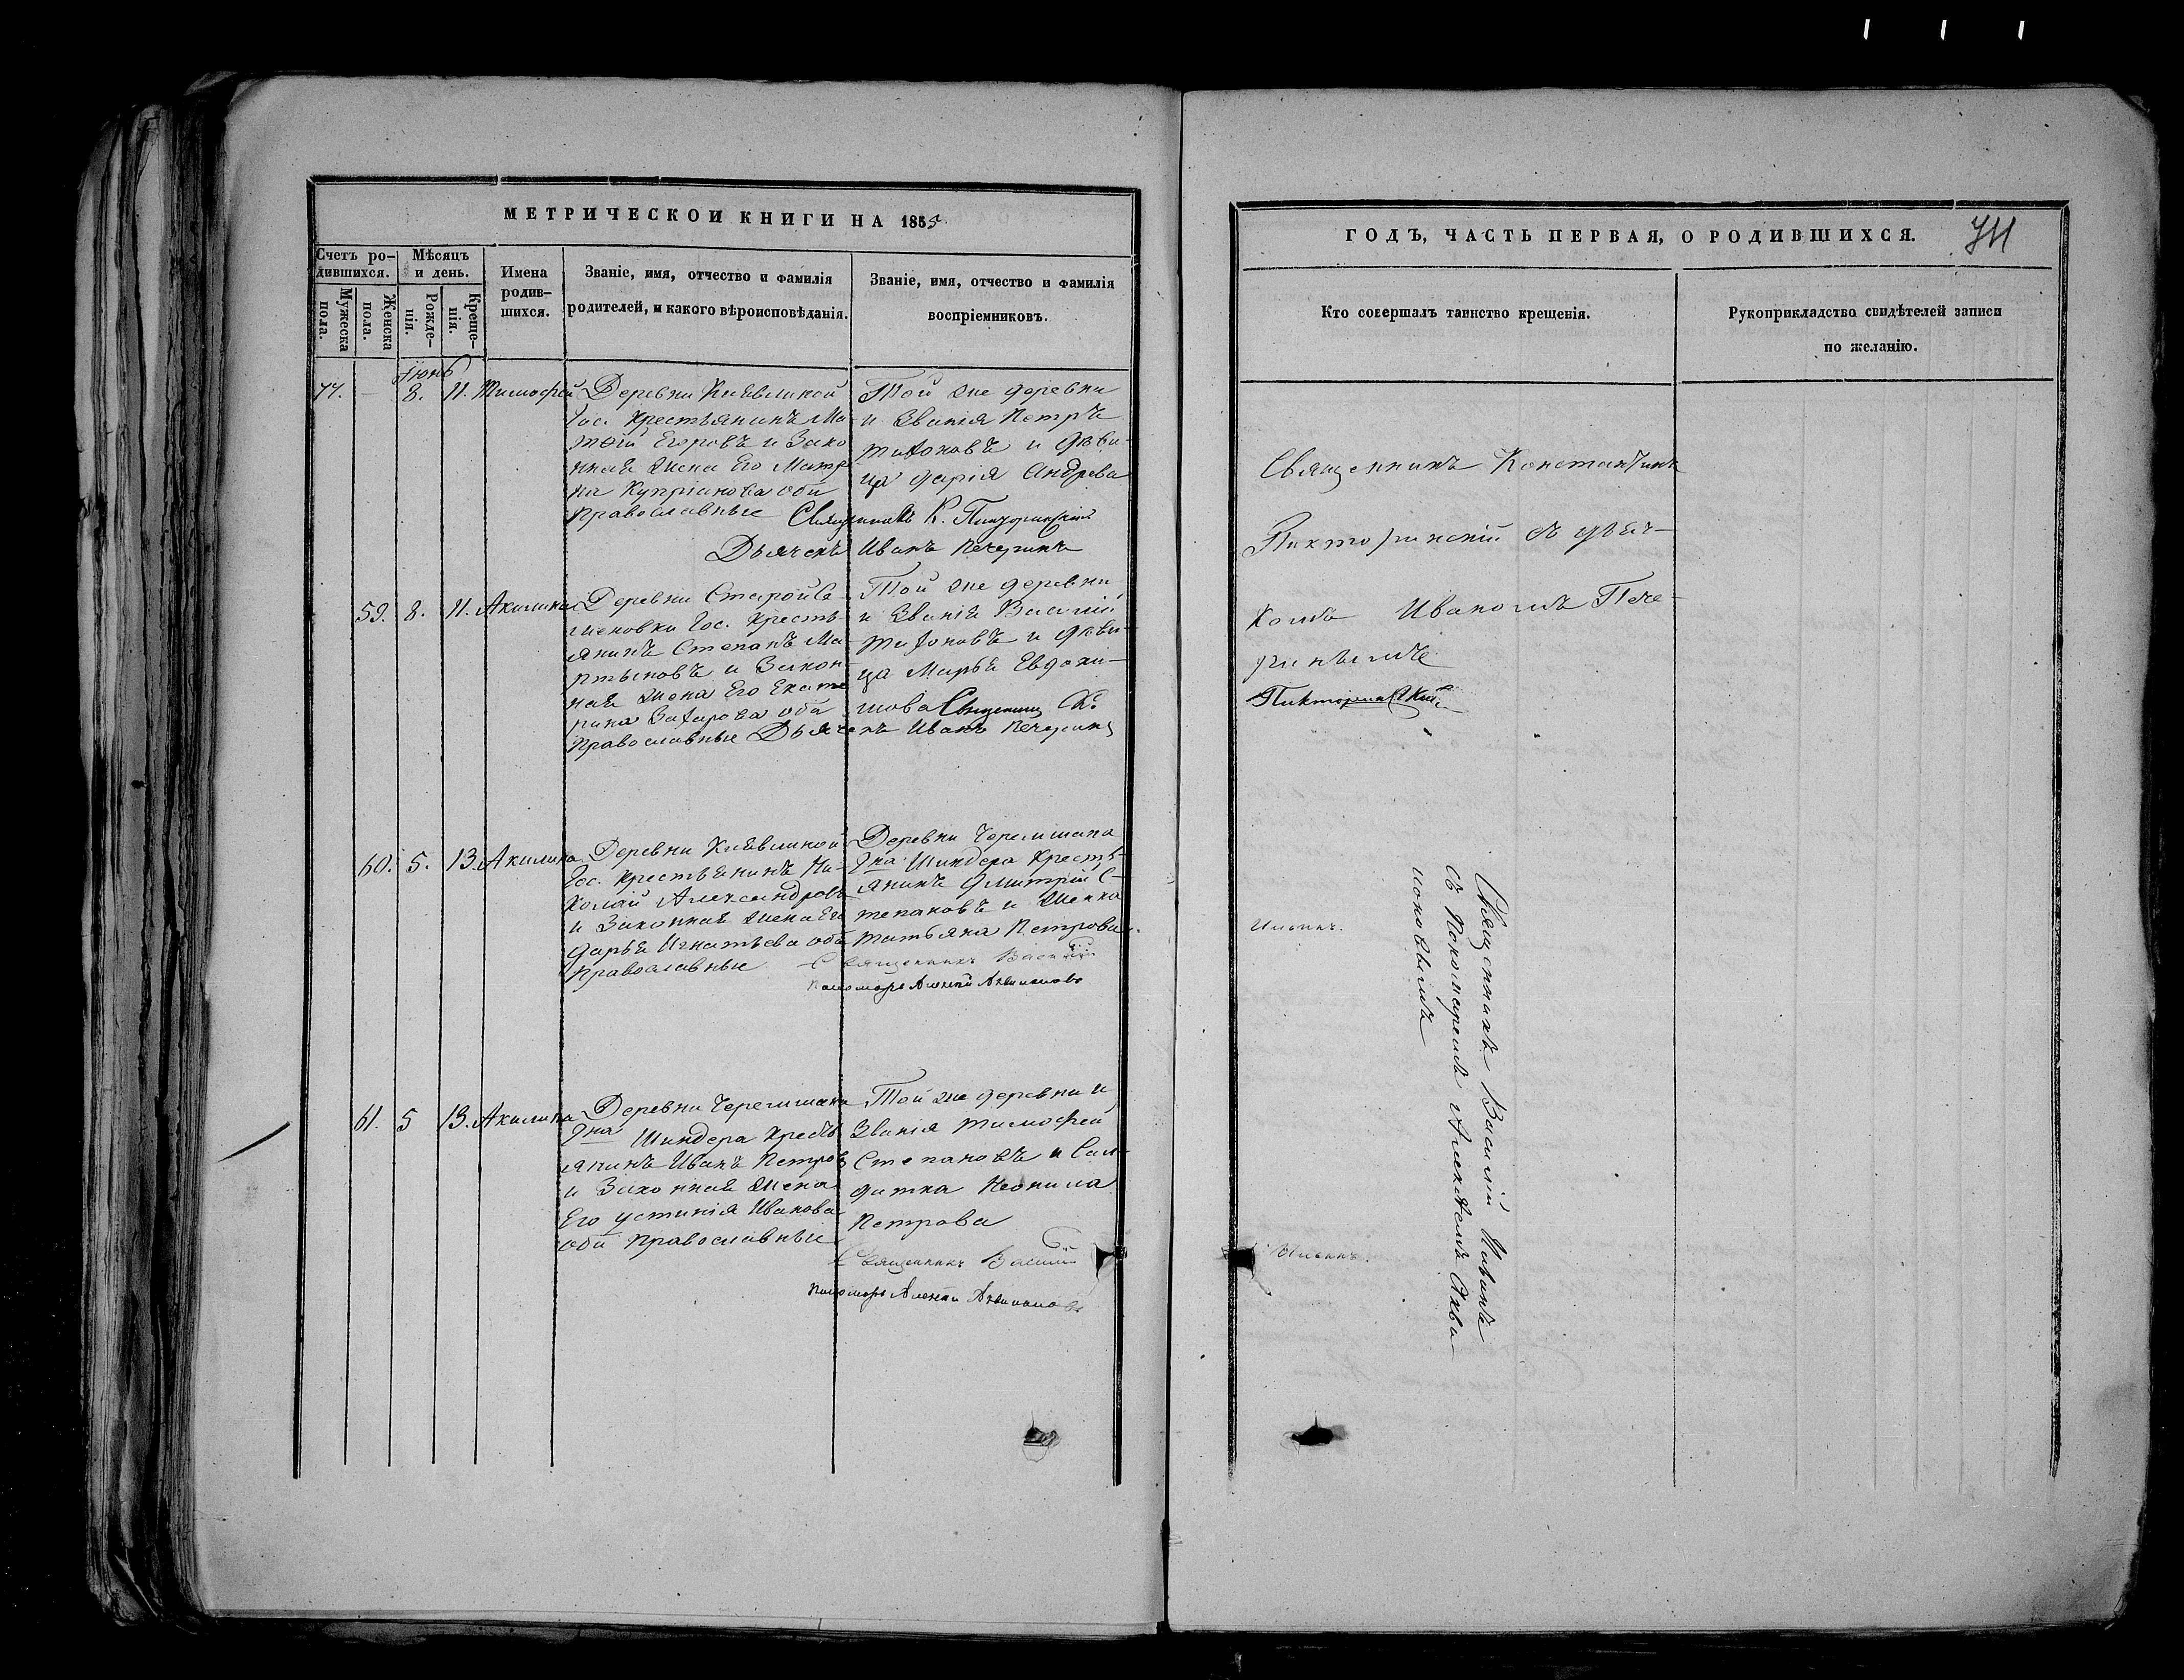 МЕТРИЧЕСКОЙ КНИГИ НА 1855
Счетъ ро-
дившихся.
Мужеска пола.
Женска пола.
Мѣсяцъ
и день.
Рожде-
нія.
Креще-
нія.
Имена
родив-
шихся.
Званіе, имя, отчество и фамилія
родителей, и какого вѣроисповѣданія.
Званіе, имя, отчество и фамилія
воспріемниковъ.
Іюнь
77. — 8. 11. Тимофей
Деревни
Гос. Крестьянинъ Ма-
тѳій Егоровъ и Зако
нная жена Его Матре
на Купріанова оба
Православные
Той же деревни
и Званія Петръ
Тихоновъ и Дѣви-
ца Дарія Андрева
Священникъ К.
Дьячекъ Иванъ Печеринъ
59. 8. 11. Акилина
Деревни Старой Се
меновки Гос. Кресть
янинъ Степанъ Ма-
ртыновъ и Закон
ная жена Его Екате
рина Захарова оба
Православные
Той же деревни
и Званія Василій
Тихоновъ и Дѣви-
ца Марья Евдоки-
мова Священник К.
Дьячекъ Иванъ Печеринъ
60. 5. 13. Акилина
Деревни
Гос. Крестьянинъ Ни-
колай Александровъ
и Законная жена Его
Дарья Игнатьева оба
Православные
Деревни Черемшана
Шиндера Кресть-
янинъ Дмитрій С-
тепановъ и Женка
Татьяна Петрова.
Священникъ Василій
Пономарь Алексѣй Аквилоновъ
61. 5 13. Акилина
Деревни Черемшана
Шиндера Кресть
янинъ Иванъ Петровъ
и Законная жена
Его Устинія Иванова
оба Православные
Той же деревни и
Званія Тимофей
Степановъ и Сол-
датка Неонила
Петрова
Священникъ Василій
Пономарь Алексѣй Аквилоновъ
ГОДЪ, ЧАСТЬ ПЕРВАЯ, О РОДИВШИХСЯ.
Кто совершалъ таинство крещенія.
Рукоприкладство свидѣтелей записи
по желанію.
Священникъ Константинъ
Пикторинскій съ дьяч-
комъ Иваномъ Пече-
ринымъ
Пикторинскій
Священникъ Василій
съ Пономаремъ Алексѣемъ Акви-
лоновымъ